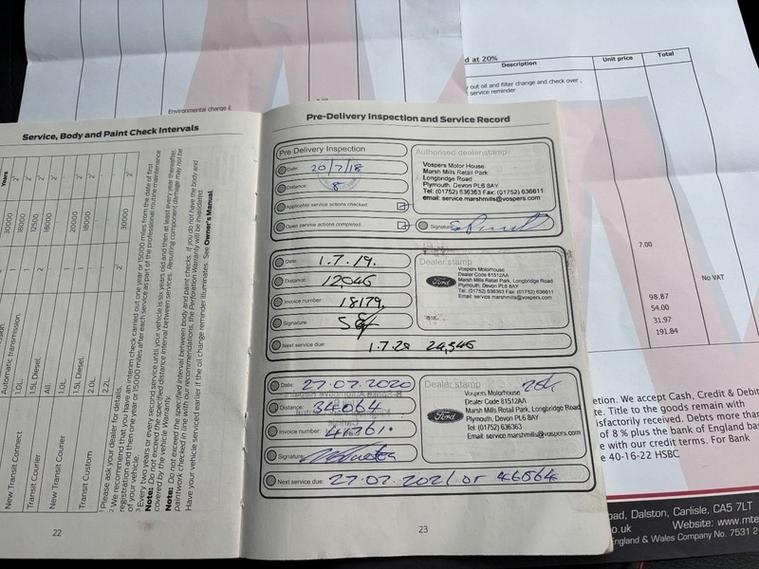 d at 20%
Description
Unit price
Total
out oil and filter change and check over ,
service reminder
Environmental charge £
7.00
No VAT
98.87
54.00
31.97
191.84
etion. We accept Cash, Credit & Debit
e. Title to the goods remain with
isfactorily received. Debts more than
of 8 % plus the bank of England bas
e with our credit terms. For Bank
e 40-16-22 HSBC
oad, Dalston, Carlisle, CA5 7LT
o.uk Website: www.mte
ngland & Wales Company No. 7531 2
Service, Body and Paint Check Intervals
Years
Automatic transmission.
New Transit Connect
1.0L
Transit Courier
1.5L Diesel.
New Transit Courier
All.
1.0L
1.5L Diesel.
Transit Custom
2.0L
2.2L
30000
18000
12500
18000
20000
18000
30000
¹ Please ask your dealer for details.
² We recommend that you have an interim check carried out one year or 15000 miles from the date of first
registration and then one year or 15000 miles after each service as part of the professional routine maintenance
of your vehicle.
³ Every two years or every second service until your vehicle is six years old and then at least every year thereafter.
Note: Do not exceed the specified distance interval between services. Resulting component damage may not be
covered by the vehicle Warranty.
Note: Do not exceed the specified interval between body and paint checks. If you do not have the body and
paintwork checked in line with our recommendations, the Perforation Warranty will be invalidated.
Have your vehicle serviced earlier if the oil change reminder illuminates. See Owner's Manual.
22
Pre-Delivery Inspection and Service Record
Pre Delivery Inspection
Date: 20/7/18
Distance: 8
Applicable service actions checked
Open service actions completed
Authorised dealer stamp
Vospers Motor House
Marsh Mills Retail Park
Longbridge Road
Plymouth, Devon PL6 8AY
Tel: (01752) 636363 Fax: (01752) 636611
email: service.marshmills@vospers.com
Signature
Date: 1.7.19.
Distance: 12046
Invoice number: 18179
Signature
Next service due: 1.7.20 24,546
Dealer stamp
Ford
Vospers Motorhouse
Dealer Code 81512AA
Marsh Mills Retail Park, Longbridge Road
Plymouth, Devon PL6 8AY
Tel: (01752) 636363 Fax: (01752) 636611
Email: service.marshmills@vospers.com
Date: 27.07.2020
Distance: 34064
Invoice number:
Signature:
Next service due: 27.07.2021 or 46564
Dealer stamp
Ford
Vospers Motorhouse
Dealer Code 81512AA
Marsh Mills Retail Park, Longbridge Road
Plymouth, Devon PL6 8AY
Email: service.marshmills@vospers.com
23